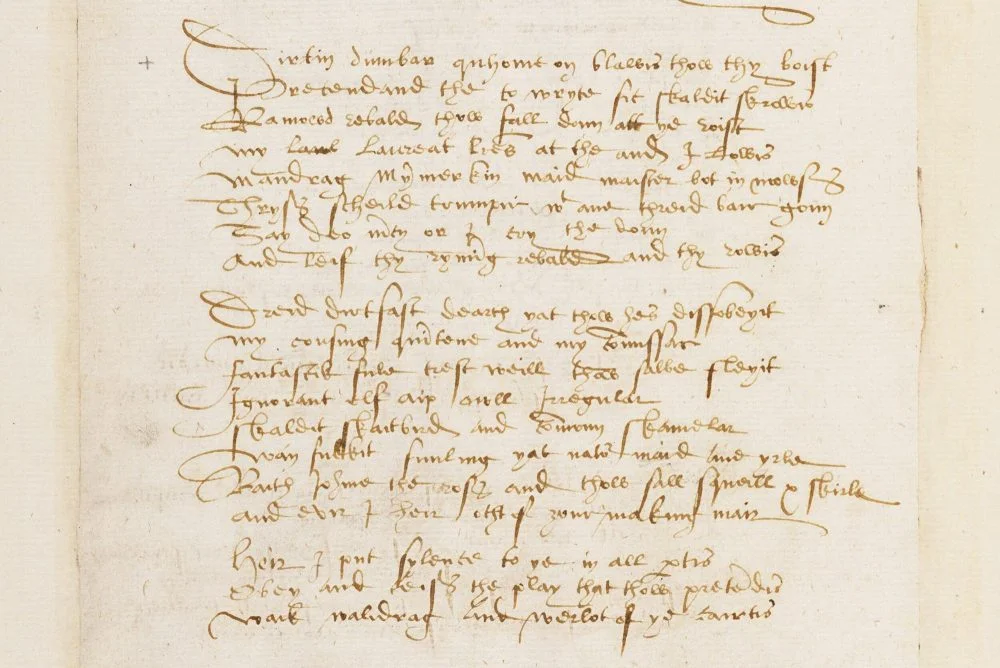 Dirtin dumbar quhome on blawis thow thy boist
Pretendand the to wryte sic skaldit skrowis
Ramowd rebald thow fall doun att ye roist
My laureat lres at the and I lowis
Mandrag mymerkin maid maister bot in mows
Thrys scheild trumpir wt ane threid bair goun
Say deo mcy or I cry the doun
And leif thy ryming rebald and thy rowis

Dreid dirtfast dearch yat thow hes dissobeyit
My cousing quintene and my comissar
Fantastik fule trest weill thow salbe fleyit
Ignorant elf aip owll Irregular
Skaldit skaitbird and comoun skamelar
Wan fukkit funling yat nato maid ane yrle
Baith Johine the ross and thow sall squeill & skirle
And evir I heir ocht of your making mair

Heir I put sylence to ye in all ptis
Obey and ceis the play that thow pretendis
Waik walidrag and werlot of ye cairtis